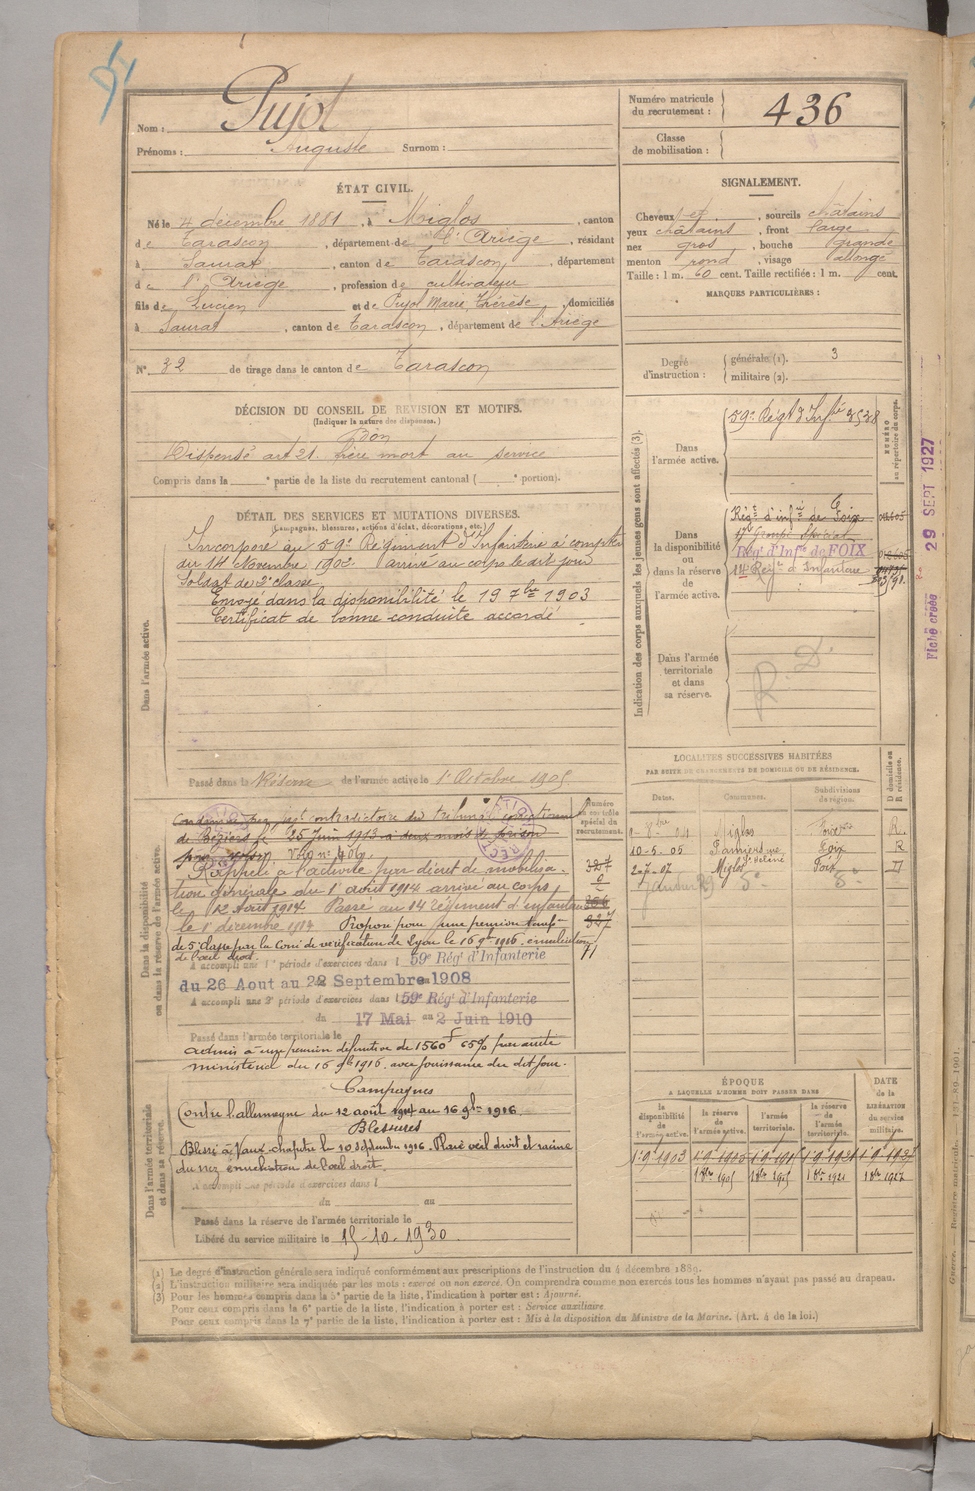 Nom : Pujol
Prénoms : Auguste Surnom :
Numéro matricule du recrutement : 436
Classe de mobilisation :
ÉTAT CIVIL.
Né le 4 décembre 1881, à Miglos, canton
de Tarascon, département de l'Ariège, résidant
à Saurat, canton de Tarascon, département
de l'Ariège, profession de cultivateur
fils de Lucien et de Pujol Marie Thérèse, domiciliés
à Saurat, canton de Tarascon, département de l'Ariège
N° 32 de tirage dans le canton de Tarascon
SIGNALEMENT.
Cheveux et, sourcils châtains
yeux châtains, front large
nez gros, bouche grande
menton rond, visage allongé
Taille : 1 m. 60 cent. Taille rectifiée : 1 m. cent.
MARQUES PARTICULIÈRES :
Degré d'instruction : générale (1). 3
militaire (2).
DÉCISION DU CONSEIL DE REVISION ET MOTIFS.
(Indiquer la nature des dispenses.)
Bon
Dispensé art 21. frère mort au service
Compris dans la ° partie de la liste du recrutement cantonal ( ° portion).
DÉTAIL DES SERVICES ET MUTATIONS DIVERSES.
(Campagnes, blessures, actions d'éclat, décorations, etc.)
Dans l'armée active.
Incorporé au 59e Régiment d'Infanterie à compter
du 14 Novembre 1902 arrivé au corps le dit jour
Soldat de 2e classe.
Envoyé dans la disponibilité le 19 7bre 1903
Certificat de bonne conduite accordé
Passé dans la Réserve de l'armée active le 1er Octobre 1905
Indication des corps auxquels les jeunes gens sont affectés (3).
NUMÉRO au répertoire du corps.
Dans l'armée active.
59e Régt d'Infie 2528
Dans la disponibilité ou dans la réserve de l'armée active.
Régt d'infie de Foix
17e Groupe Spécial
Régt d'Infie de FOIX
14e Régt d'Infanterie
Dans l'armée territoriale et dans sa réserve.
R. D.
Fiche créée 29 SEPT 1927
Dans la disponibilité ou dans la réserve de l'armée active.
Numéro au contrôle spécial du recrutement.
Condamné par jugt contradictoire du tribunal correctionnel
de Béziers le 25 Juin 1913 à deux mois de prison
Rappelé à l'activité par décret de mobilisa-
tion générale du 1er août 1914 arrivé au corps
le 12 Août 1914. Passé au 14 régiment d'infanterie
le 1er décembre 1914 Proposé pour une pension temp-
de 5e classe par la Comon de vérification de Lyon le 16 9bre 1916, énucléation
de l'œil droit.
327
71
A accompli une 1re période d'exercices dans l 59e Régt d'Infanterie
du 26 Aout au 22 Septembre 1908
A accompli une 2e période d'exercices dans l 59e Régt d'Infanterie
du 17 Mai au 2 Juin 1910
Passé dans l'armée territoriale le
admis à une pension définitive de 1560f 65% par arrêté
ministériel du 16 9bre 1916. avec jouissance du dit jour.
Dans l'armée territoriale et dans sa réserve.
Campagnes
Contre l'allemagne du 12 août 1914 au 16 9bre 1916.
Blessures
Blessé à Vaux-chapitre le 10 septembre 1916. Plaie œil droit et racine
du nez énucléation de l'œil droit.
A accompli une période d'exercices dans l
du au
Passé dans la réserve de l'armée territoriale le
Libéré du service militaire le 15-10-1930.
LOCALITÉS SUCCESSIVES HABITÉES
PAR SUITE DE CHANGEMENTS DE DOMICILE OU DE RÉSIDENCE.
Dates. Communes. Subdivisions de région. D domicile ou R résidence.
Miglos Foix R.
10-5-05 Pamiers Foix R
2-7-07 Miglos Foix D
ÉPOQUE
A LAQUELLE L'HOMME DOIT PASSER DANS
la disponibilité de l'armée active. la réserve de l'armée active. l'armée territoriale. la réserve de l'armée territoriale. DATE de la LIBÉRATION du service militaire.
1 8bre 1905 1 8bre 1915 1 8bre 1921 1 8bre 1927
(1) Le degré d'instruction générale sera indiqué conformément aux prescriptions de l'instruction du 4 décembre 1889.
(2) L'instruction militaire sera indiquée par les mots : exercé ou non exercé. On comprendra comme non exercés tous les hommes n'ayant pas passé au drapeau.
(3) Pour les hommes compris dans la 5e partie de la liste, l'indication à porter est : Ajourné.
Pour ceux compris dans la 6e partie de la liste, l'indication à porter est : Service auxiliaire.
Pour ceux compris dans la 7e partie de la liste, l'indication à porter est : Mis à la disposition du Ministre de la Marine. (Art. 4 de la loi.)